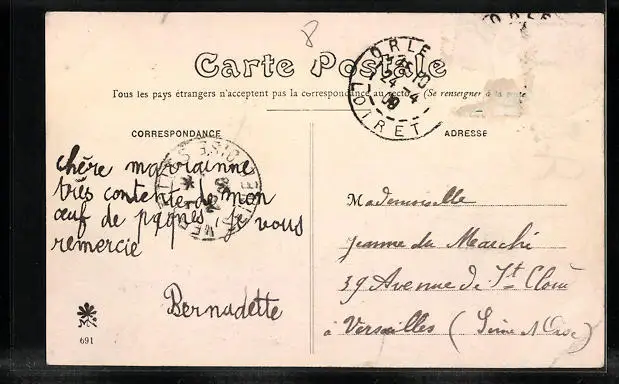 8
ORLE
Carte Postale
Tous les pays étrangers n'acceptent pas la correspondance au recto (Se renseigner à la poste
ORLE
24-4
09
LOIRET
CORRESPONDANCE
ADRESSE
chère marrainne
très contente de mon
œuf de paques, je vous
remercie
Bernadette
Mademoiselle
Jeanne du Marché
39 Avenue de St Cloud
à Versailles (Seine & Oise)
691